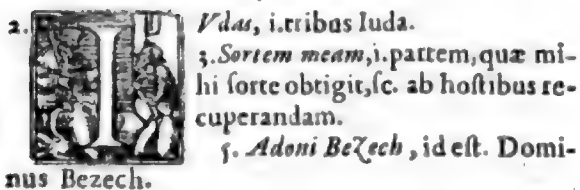 2. IUdas, i. tribus Iuda.
3. Sortem meam, i. partem, quæ mi-
hi ſorte obtigit, ſc. ab hoſtibus re-
cuperandam.
5. Adoni Bezech, id eſt. Domi-
nus Bezech.